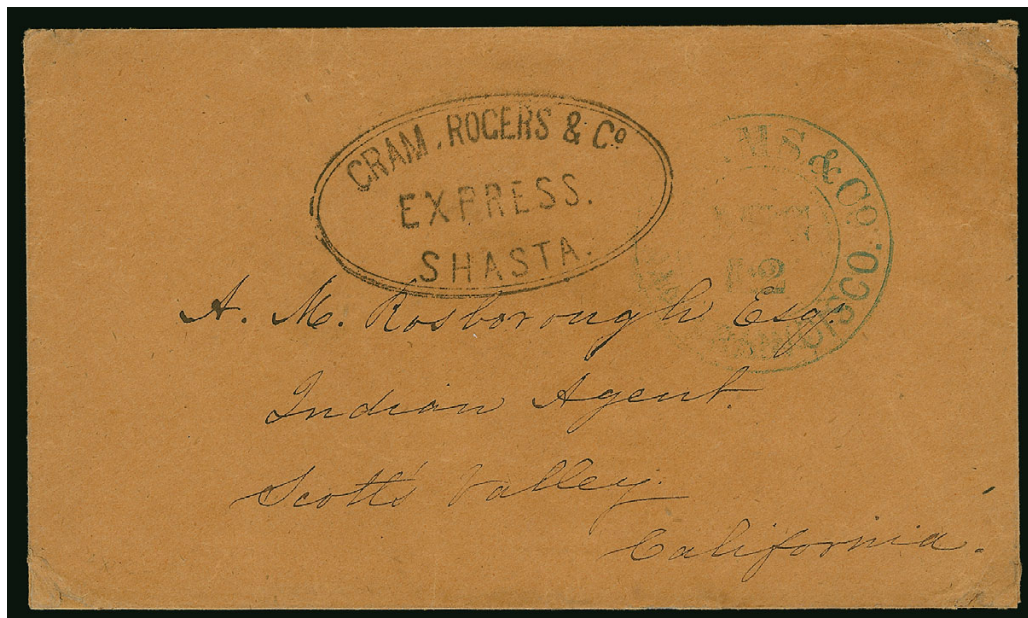 CRAM, ROGERS & Co
EXPRESS.
SHASTA.
MS & Co.
2
CISCO.
A. M. Rosborough Esq.
Indian Agent.
Scott's Valley.
California.